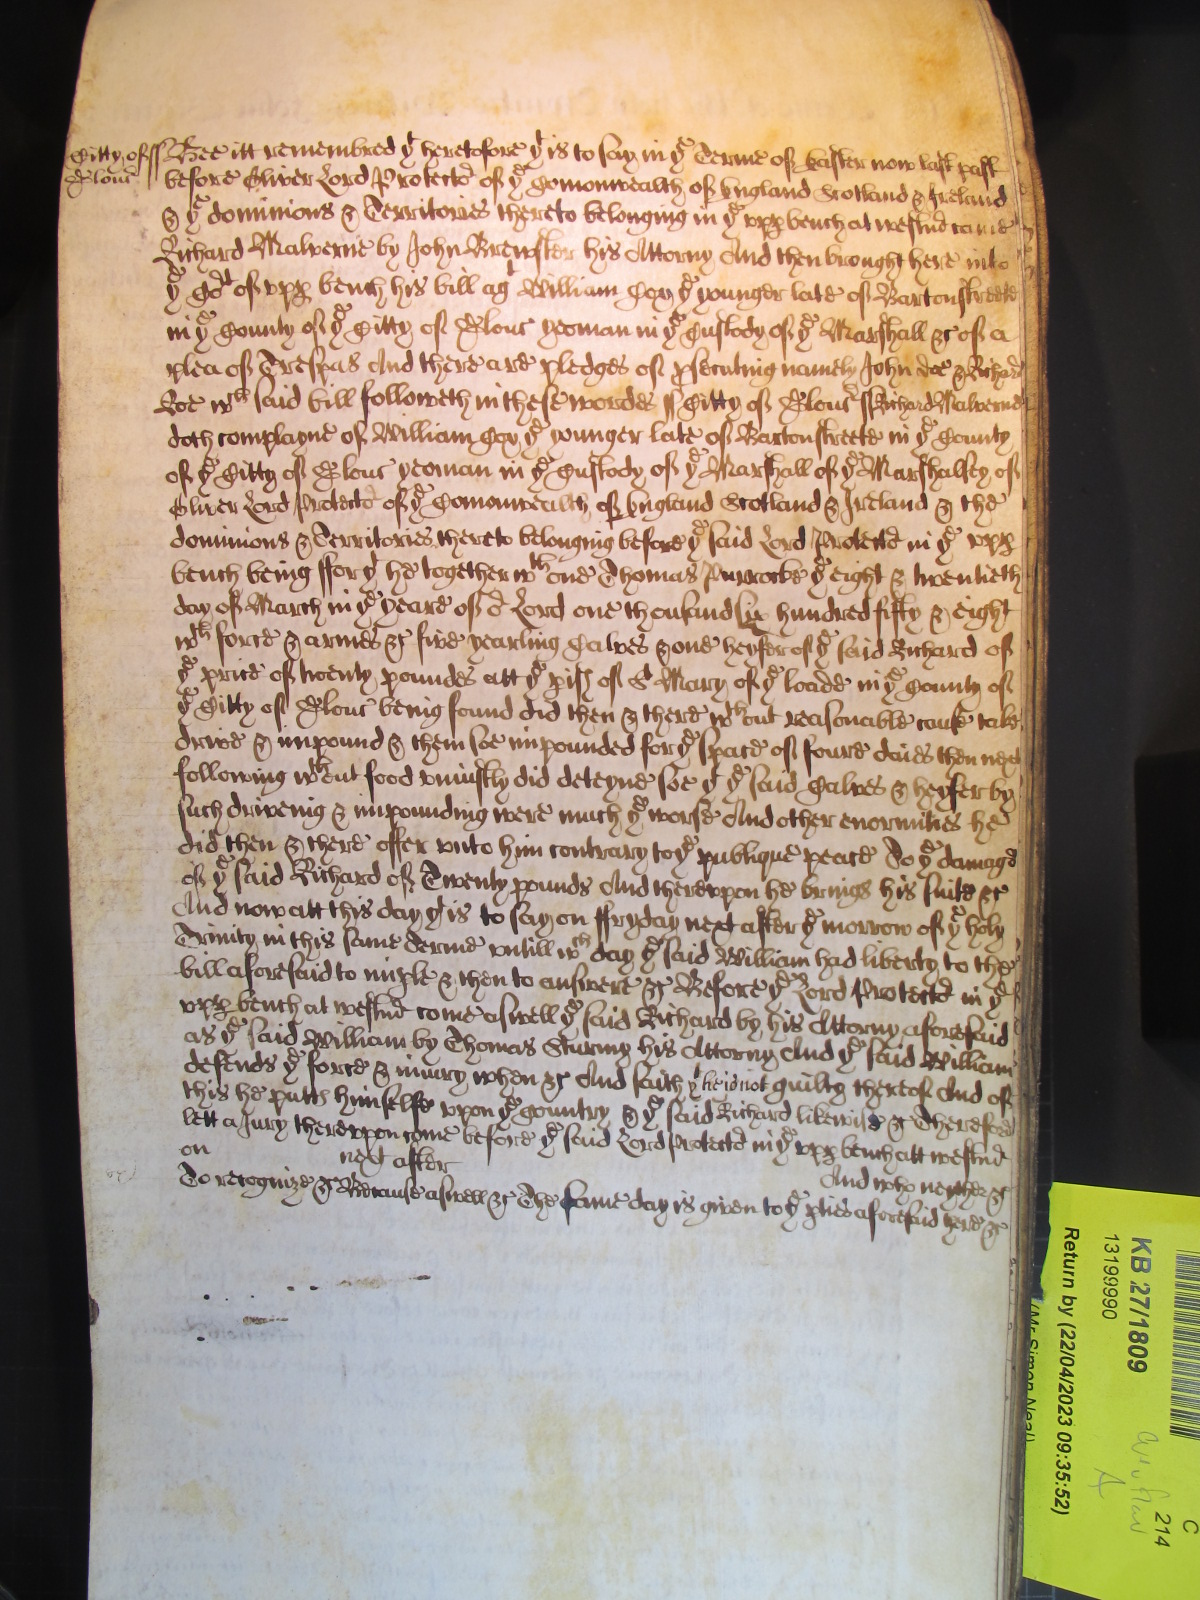 Citty of ss Bee itt remembred yt heretofore yt is to say in ye Terme of Easter now last past
Glouc before Oliver Lord Protectr of ye Comonwealth of England Scotland & Ireland
& ye dominions & Territories thereto belonging in ye upp bench at westmr came
Richard Malverne by John Brewster his Attorny And then brought here into
ye Cort of upp bench his bill agt William Coy ye younger late of Bartonstreete
in ye County of ye Citty of Glouc yeoman in ye Custody of ye Marshall &c of a
plea of Trespas And there are pledges of psecuting namely John doe & Richard
Roe wch said bill followeth in these wordes ss Citty of Glouc ss Richard Malverne
doth complayne of William Coy ye younger late of Bartonstreete in ye County
of ye Citty of Glouc yeoman in ye Custody of ye Marshall of ye Marshalsey of
Oliver Lord Protectr of ye Comonwealth of England Scotland & Ireland & the
dominions & Territories thereto belonging before ye said Lord Protectr in ye upp
bench being ffor yt he together wth one Thomas Purrocke ye eight & twentieth
day of March in ye yeare of or Lord one thousand six hundred fifty & eight
wth force & armes &c five yearling Calves & one heyfer of ye said Richard of
ye price of twenty poundes att ye pish of St Mary of ye loade in ye County of
ye Citty of Glouc being found did then & there wthout reasonable cause take
drive & impound & them soe impounded for ye space of foure daies then next
following wthout food uniustly did deteyne soe yt ye said Calves & heyfer by
such driveing & impounding were much ye worse And other enormities he
did then & there offer unto him contrary to ye publique peace To ye damage
of ye said Richard of Twenty pounds And thereupon he brings his suite &c
And now att this day yt is to say on ffryday next after ye morrow of ye holy
Trinity in this same Terme untill wch day ye said William had liberty to the
bill aforesaid to imple & then to answere &c Before ye Lord Protectr in ye
upp bench at westmr come aswell ye said Richard by his Attorny aforesaid
as ye said William by Thomas Sturmy his Attorny And ye said William
defends ye force & iniury when &c And saith yt he is not guilty thereof And of
this he putts himselfe upon ye Country & ye said Richard likewise &c Therefore
lett a Jury thereupon come before ye said Lord Protectr in ye upp bench att westmr
on next after And who neyther &c
To recognize &c Because aswell &c The same day is given to ye pties aforesaid here &c
KB 27/1809
13199990
Return by (22/04/2023 09:35:52)
C
214
A